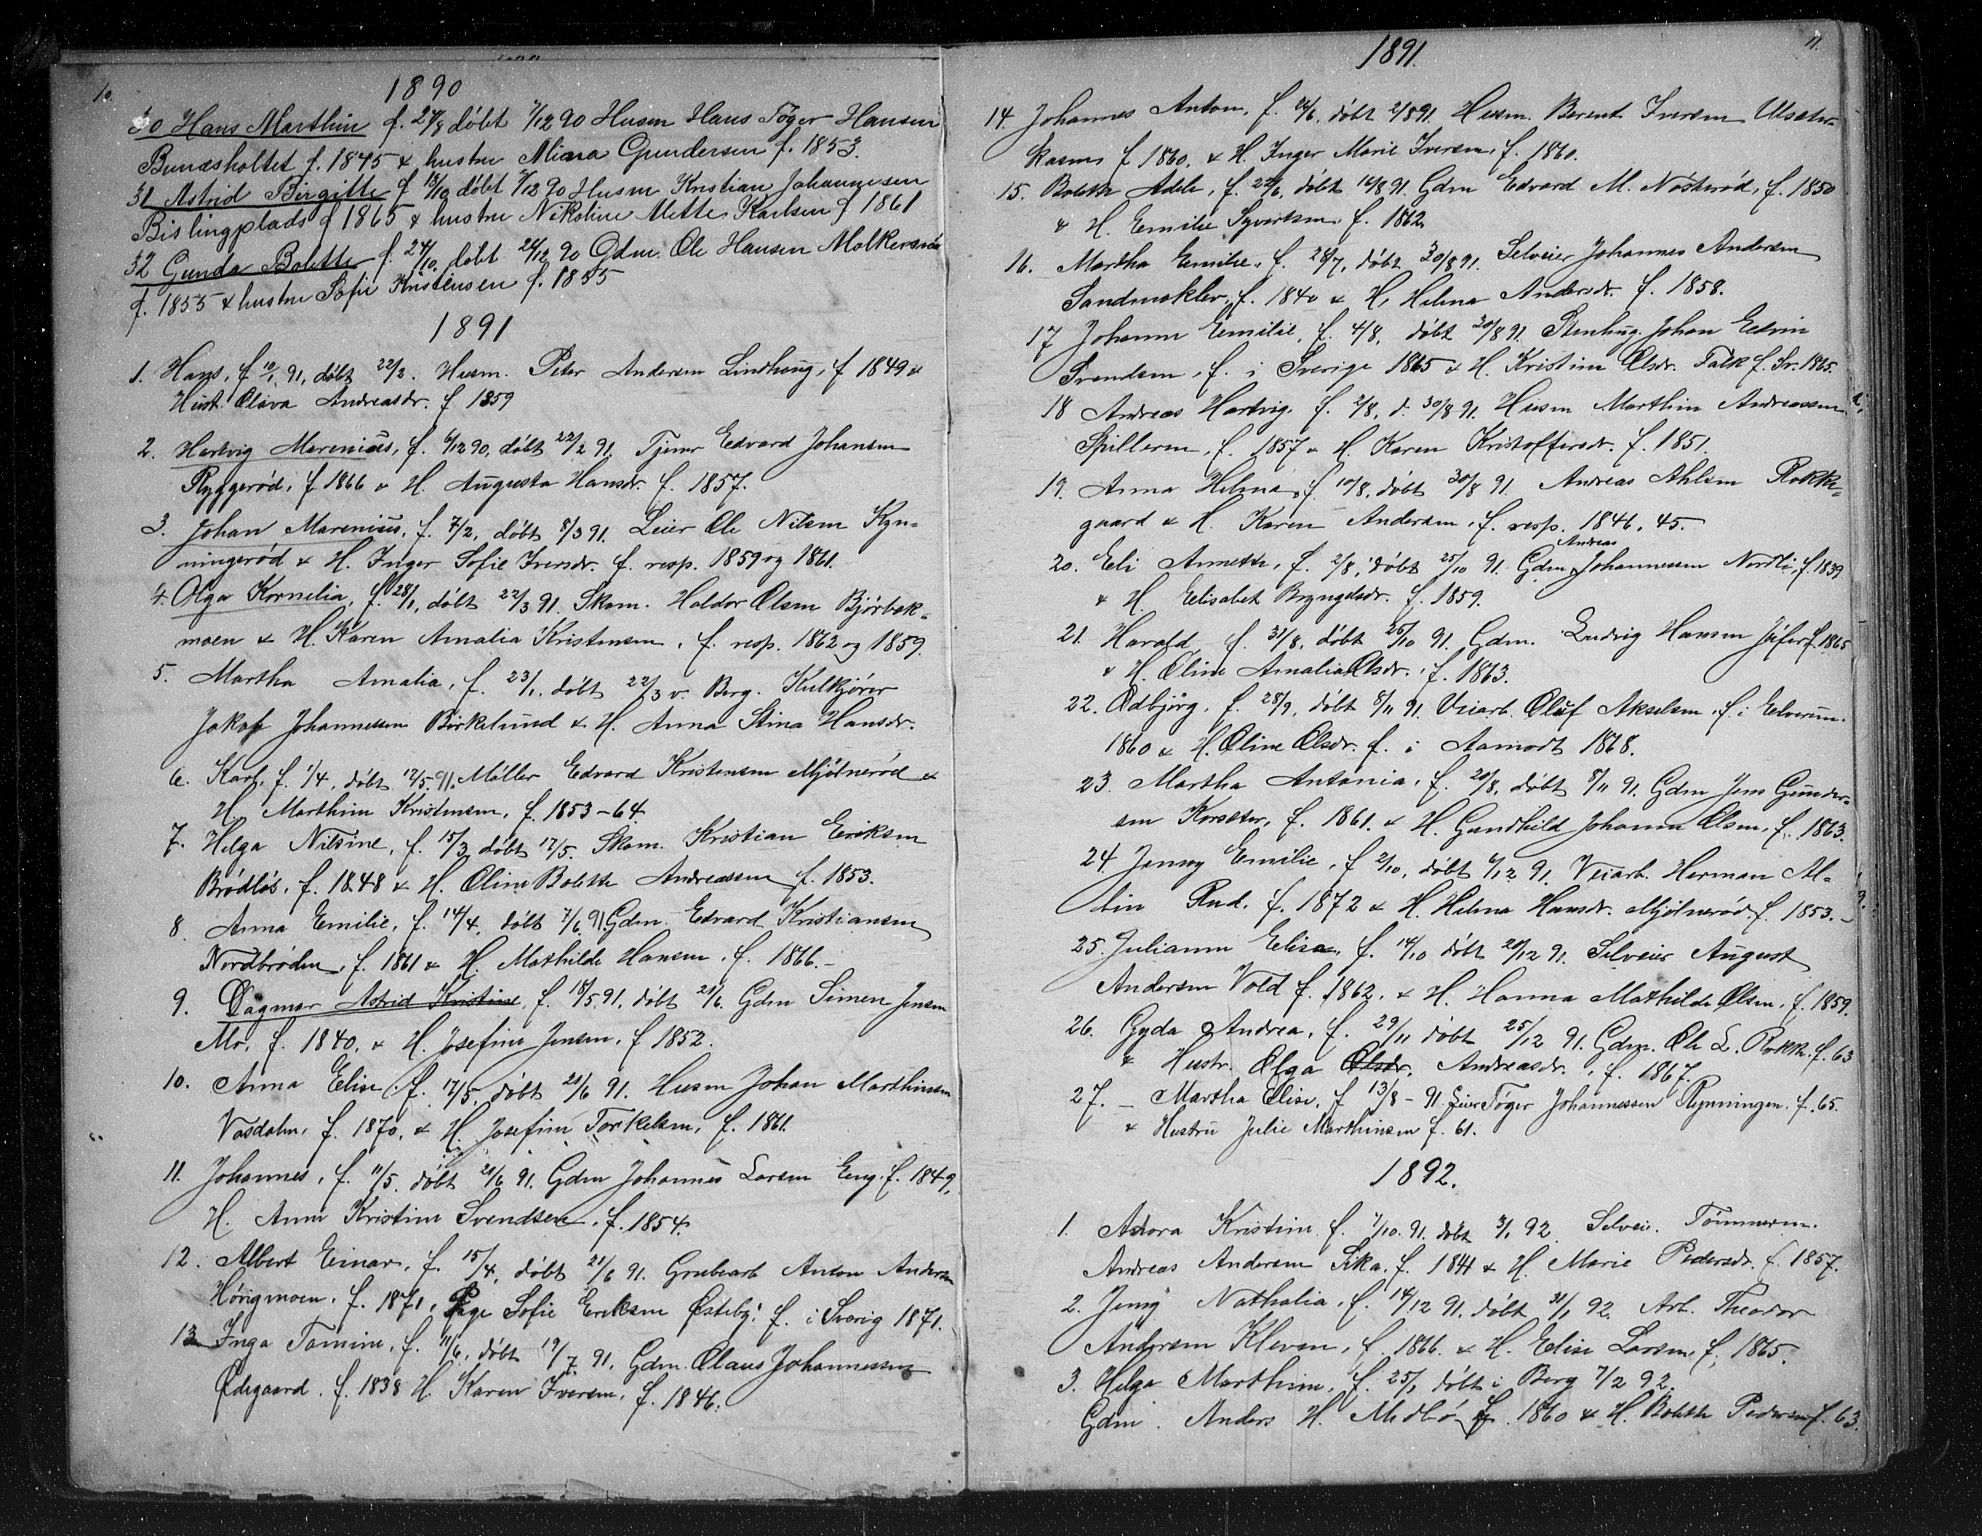 10.
1890
30 Hans Marthin f. 27/9 døbt 7/12 90 Husm Hans Tøger Hansen
Bunæsholtet f. 1845 & hustru Miara Gundersen f. 1853.
31 Astrid Birgitte f 13/10 døbt 7/12 90 Husm Kristian Johannesen
Bislingplads f 1865 & hustru Nikoline Mette Karlsen f 1861
32 Gunda Bolette f. 24/10 døbt 24/12 90 Gdm. Ole Hansen
f. 1855 & hustru Sofie Kristensen f. 1855
1891
1. Hans, f 10/1 91, døbt 22/2. Husm. Peter Andersen Lindhaug, f 1849 &
Hust. Olava Andreasdr. f 1859
2. Hartvig Marenius, f. 6/12 90, døbt 22/2 91. Edvard Johansen
Ryggerød, f. 1866 & H. Augusta Hansdr. f. 1857.
3. Johan Marenius, f. 7/2, døbt 8/3 91. Leier Ole Nilsen Ryn-
ningerød & H. Inger Sofie Iversdr. f. resp. 1859 og 1861.
4. Olga Kornelia, f. 28/1, døbt 22/3 91. Skom. Haldor Olsen Bjørbek-
moen & H. Karen Amalia Kristensen, f. resp. 1862 og 1859.
5. Martha Amalia, f. 23/1. døbt 22/3 v. Berg. Kulkjører
Jakob Johannessen Birkelund & H. Anna Stina Hansdr.
6. Karl, f. 1/4, døbt 17/5. 91. Møller Edvard Kristensen Mjølnerød &
H. Marthine Kristensen, f. 1853-64.
7. Helga Nilsine, f. 15/3 døbt 17/5. Skom. Kristian Eriksen
Brødløs, f. 1848 & H. Oline Bolette Andreassen f. 1853.
8. Anna Emilie, f. 14/4, døbt 7/6 91 Gdm. Edvard Kristiansen
Nordbrøden, f. 1861 & H. Mathilde Hansen, f. 1866.-
9. Dagmar Astrid Kristine, f. 18/5. 91, døbt 21/6. Gdm Simen Jensen
Mo, f. 1840, & H. Josefine Jensen, f 1852.
10. Anna Elise, f. 17/5, døbt 21/6 91. Husm Johan Marthinsen
Vasdalen, f. 1870, & H. Josefine Torkelsen, f. 1861.
11. Johannes, f. 11/5. døbt 21/6 91. Gdm Johannes Larsen Eng. f. 1849,
H. Anne Kristine Svendsen, f. 1854.
12. Albert Einar, f. 15/4, døbt 21/6 91. Grubearb Anton Andersen
Hørigmoen, f. 1871, Pige Sofie Eriksen Østeby. f. i Sverig 1871.
13 Inga Tomine, f. 11/6, døbt 19/7 91. Gdm. Olaus Johannessen
Ødegaard. f. 1838 H. Karen Iversen, f. 1846.
11.
1891.
14. Johannes Anton, f. 26/6. døbt 2/8 91. Husm. Berent Iversen Ulseter-
kasen f 1860. & H. Inger Marie Iversen, f. 1860.
15. Bolette Adele, f. 22/6, døbt 16/8 91. Gdm Edvard M. Nøsterød, f. 1850
& H. Emilie Syvertsen f. 1862
16. Martha Emilie, f. 28/7, døbt 30/8 91. Selveier Johannes Andersen
Sandmoklev, f. 1840 & H. Helma Andersdr. f. 1858.
17 Johanne Emilie, f. 4/8, døbt 30/8 91. Stenhug. Johan Edvin
Svendsen, f. i Sverige 1865 & H. Kristine Olsdr. Falk f. Sv. 1865.
18 Andreas Hartvig. f. 2/8, d. 30/8 91. Husm Marthin Andreassen
Spilleren, f. 1857 & H. Karen Kristoffersdr. f. 1851.
19. Anna Helma, f 10/8, døbt 30/8 91. Andreas Ahlsen Rokke-
gaard & H. Karen Andersen, f. resp. 1846. 45.-
20. Eli Annette, f. 2/8, døbt 25/10 91. Gdm Andreas Johannessen Nordli, f. 1839
& H. Elisabet Bryngelsdr. f. 1859.
21. Harald f. 31/8, døbt 25/10 91. Gdm. Ludvig Hansen f. 1865
& H. Oline Amalia Olsdr., f. 1863.
22. Odbjørg. f. 28/9, døbt 8/11 91. Veiarb. Oluf Akselsen, f. i Elverum.
1860 & H. Oline Olsdr. f. i Aamodt 1868.
23. Martha Antonia, f. 20/8, døbt 8/11 91. Gdm Jens Gunder-
sen Korseter, f. 1861. & H. Gundhild Johanne Olsen, f. 1863.
24 Jenny Emilie, f 2/10, døbt 6/12 91. Veiarb. Herman Al-
bin Rud. f. 1872 & H. Helma Hansdr. Mjølnerød f. 1853.-
25. Julianne Elisa, f. 14/10 døbt 20/12 91. Selveier August
Andersen Vold f. 1862. & H. Hanna Mathilde Olsen, f. 1859.
26. Gyda Andrea, f. 29/11 døbt 25/12 91. Gdm. Ole L. Rokke. f. 63
& Hustr. Olga Olsdr. Andreasdr., f. 1867.
27. - Martha Elise, f 13/8 - 91. Leier Tøger Johannessen Rynningen. f. 65.
& Hustru Julie Marthinsen f. 61.
1892.
1. Astora Kristine f. 1/10. 91. døbt 3/1 92. Selvei. Tømmerm.
Andreas Andersen Sika f. 1841 & H. Marie Pedersdr. f. 1857.
2. Jenny Nathalia, f. 14/12 91. døbt 31/1 92. Arb. Theodor
Andersen Kleven, f. 1866. & H. Elise Larsen, f. 1865.
3. Helga Marthine, f. 25/1 døbt i Berg 7/2 92.
Gdm. Anders H. Midbø f. 1860 & H. Bolette Pedersen f. 63.